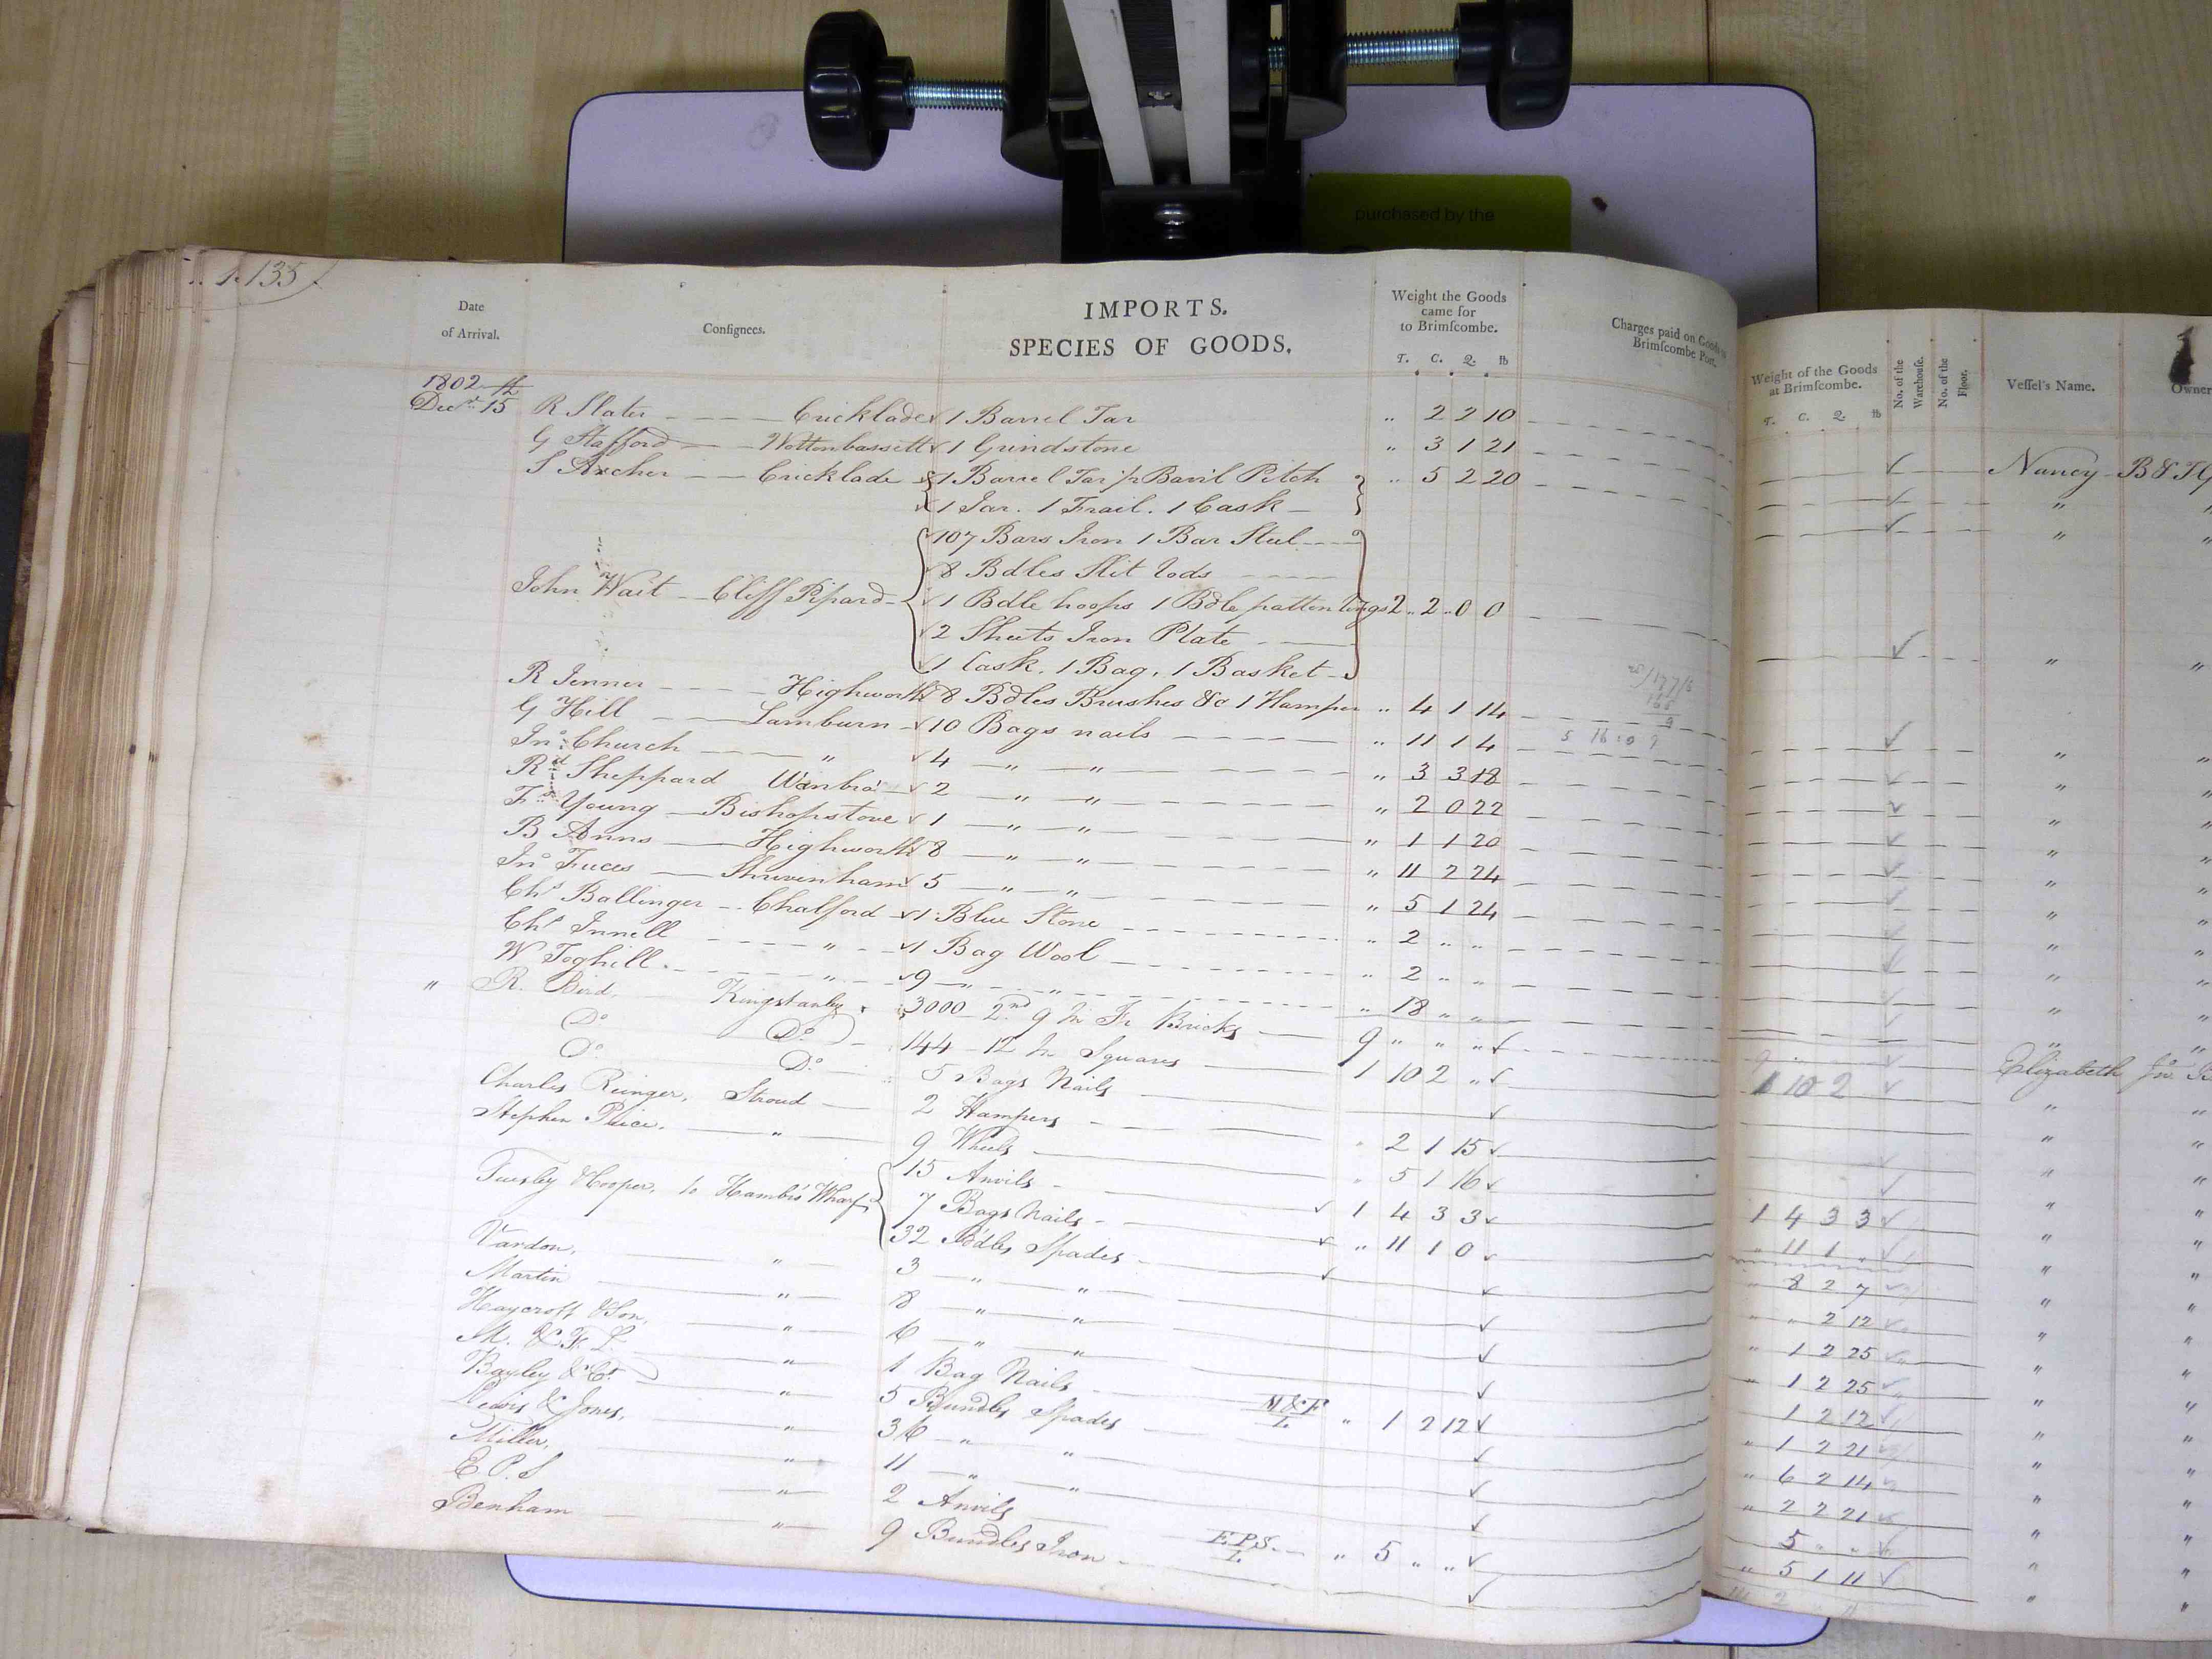 purchased by the
135
Date of Arrival. Consignees. IMPORTS. SPECIES OF GOODS. Weight the Goods came for to Brimscombe. Charges paid on Goods Brimscombe Port. Weight of the Goods at Brimscombe. No. of the Warehouse. No. of the Floor. Vessel's Name. Owner
T. C. Q. lb T. C. Q. lb
1802
Decr 15 R Slater Cricklade 1 Barrel Tar " 2 2 10 Nancy B & T
G Stafford Wottonbassett 1 Grindstone " 3 1 21 "
S Archer Cricklade 1 Barrel Tar Baril Pitch " 5 2 20 "
1 Jar. 1 Frail. 1 Cask
107 Bars Iron 1 Bar Steel
8 Bdles Slit rods
John Wait Cliff Pipard 1 Bdle hoops 1 Bdle patten 2 " 2 " 0 0 "
2 Sheets Iron Plate
1 Cask. 1 Bag. 1 Basket
R Jenner Highworth 8 Bdles Brushes &c 1 Hamper " 4 1 14 "
G Hill Lamburn 10 Bags nails " 11 1 4 "
Jno Church " 4 " " " 3 3 18 "
Rd Sheppard 2 " " " 2 0 22 "
Young Bishopstone 1 " " " 1 1 20 "
B Anns Highworth 8 " " " 11 2 24 "
Jno Shrivenham 5 " " " 5 1 24 "
Chs Ballinger Chalford 1 Blue Stone " 2 " " "
Chs Innell " 1 Bag Wool " 2 " " "
W Toghill " 9 " " 18 " " "
" R. Bird. Kingstanley 3000 2nd 9 In Fr Bricks 9 " " " 9 Elizabeth
Do Do 144 - 12 In Squares 1 10 2 " 1 10 2 "
Do Do 5 Bags Nails "
Charles Stroud 2 Hampers " 2 1 15 "
Stephen " 9 Wheels " 5 1 16 "
15 Anvils 1 4 3 3 1 4 3 3 "
& Cooper, to Wharf 7 Bags Nails " 11 1 0 " 11 1 " "
32 Bdles Spades " 8 2 7 "
Vardon, " 3 " " " " 2 12 "
Martin " 8 " " " 1 2 25 "
Haycroft & Son, " 6 " " " 1 2 25 "
M. & F. L. " 1 Bag Nails M&F L " 1 2 12 1 2 12 "
Bayley & Co " 5 Bundles Spades " 1 2 21 "
Lewis & Jones, " 36 " " " 6 2 14 "
Miller, " 11 " " " 2 2 21 "
E. P. S " 2 Anvils E P S. L " 5 " " 5 " " "
Benham " 9 Bundles Iron " 5 1 11 "